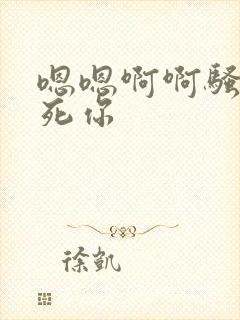 嗯嗯啊啊骚
死你
徐凯